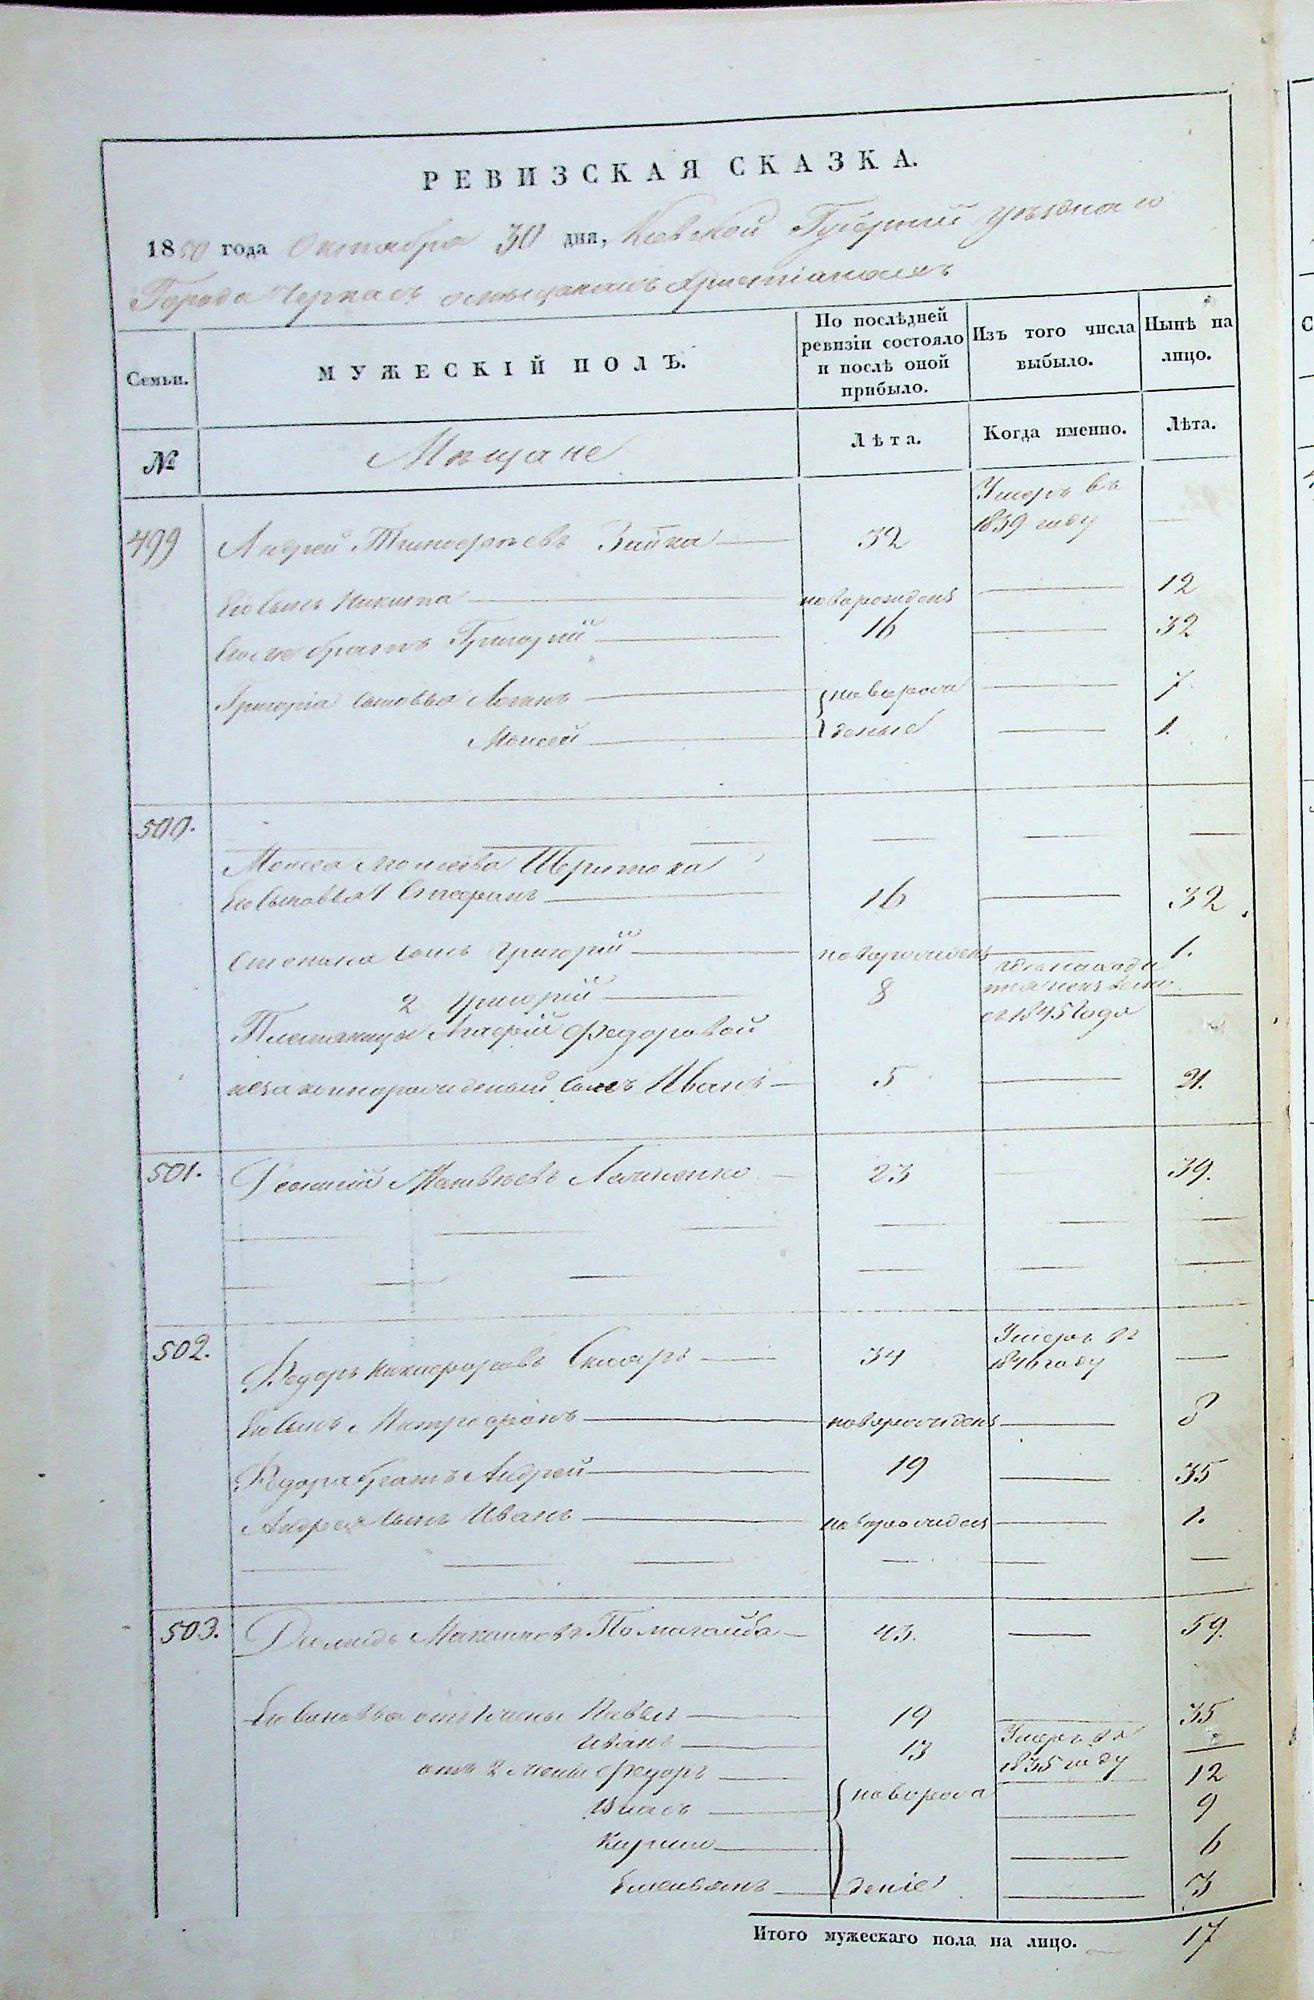 РЕВИЗСКАЯ СКАЗКА.
1850 года Октября 30 дня, Киевской Губерніи уѣзднаго
Города Черкасъ о мѣщанахъ Христіанахъ
Семьи.
МУЖЕСКІЙ ПОЛЪ.
По послѣдней ревизіи состояло и послѣ оной прибыло.
Изъ того числа выбыло.
Нынѣ на лицо.
№
Мѣщане
Лѣта.
Когда именно.
Лѣта.
499 Андрей Тимофѣевъ Зайка — 32 Умеръ въ 1839 году —
Его сынъ Никита — новорожденъ — 12
Его же братъ Григорій — 16 — 32
Григорія сыновья Логинъ — новорож — 7
Моисей — деные — 1.
500. — — —
Моисея Моисеева
Его сыновья 1 Степанъ — 16 — 32
Степана сынъ Григорій — новорожденъ — 1.
2 Григорій — 8 съ 1845 года —
Племянницы Федоровой
незаконнорожденный сынъ Иванъ — 5 — 21.
501. Леонтій Матвѣевъ — 23 39.
502. Федоръ Никифоровъ — 34 Умеръ въ 1846 году —
Его сынъ Митрофанъ — новорожденъ — 8
Федора братъ Андрей — 19 — 35
Андрея сынъ Иванъ — новорожденъ — 1.
503. Демидъ Помагайба — 43. — 59.
Его сыновья отъ 1 жены Павелъ — 19 — 35
Иванъ — 13 Умеръ въ 1835 году —
отъ 2 жены Федоръ — новорож — 12
Власъ — — 9
Кирило — — 6
Емельянъ — деніе — 3
Итого мужескаго пола на лицо. 17